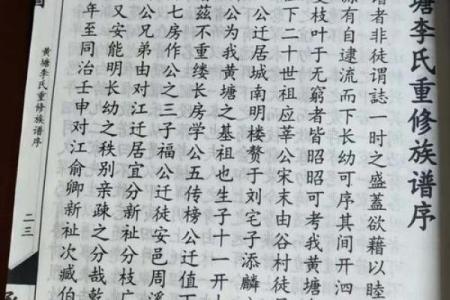 塘李氏重修族谱序
者非徒谓誌一时之盛蓋欲藉以睦
源有自逮流而下长幼可序其间开泗
支枝叶于无穷者皆昭昭可考我黄塘
下二十世祖应莘公宋末由谷村徒
公迁居城南明楼赘于刘宅子添麟
公为我黄塘之基祖也生子十一开
兹不重缕长房学公五传榜公迁值下
七房作公之三子福公迁徒安邑周溪
公兄弟由对江迁居宜分新祉分枝广
又安能明长幼之秩别亲疎之分哉乾
年至同治壬申对江俞卿新祉次臧伯
黄塘李氏重修族谱序
二三